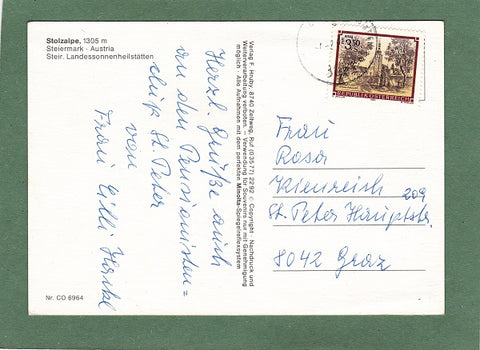 Stolzalpe, 1305 m
Steiermark - Austria
Steir. Landessonnenheilstätten
Herzl. Grüße auch
von den Pensionisten=
St. Peter
von
Frau Cilli
Verlag F. Hruby, 8740 Zeltweg, Ruf (0 35 77) 22 92 / Copyright · Nachdruck und
Weiterverarbeitung verboten. – Verwendung für Souvenirs nur mit Genehmigung
möglich · Alle Aufnahmen mit dem perfekten Minolta-Spiegelreflexsystem
REPUBLIK ÖSTERREICH
Frau
Rosa
Kienreich
209
St. Peter Hauptstr.
8042 Graz
Nr. CO 6964